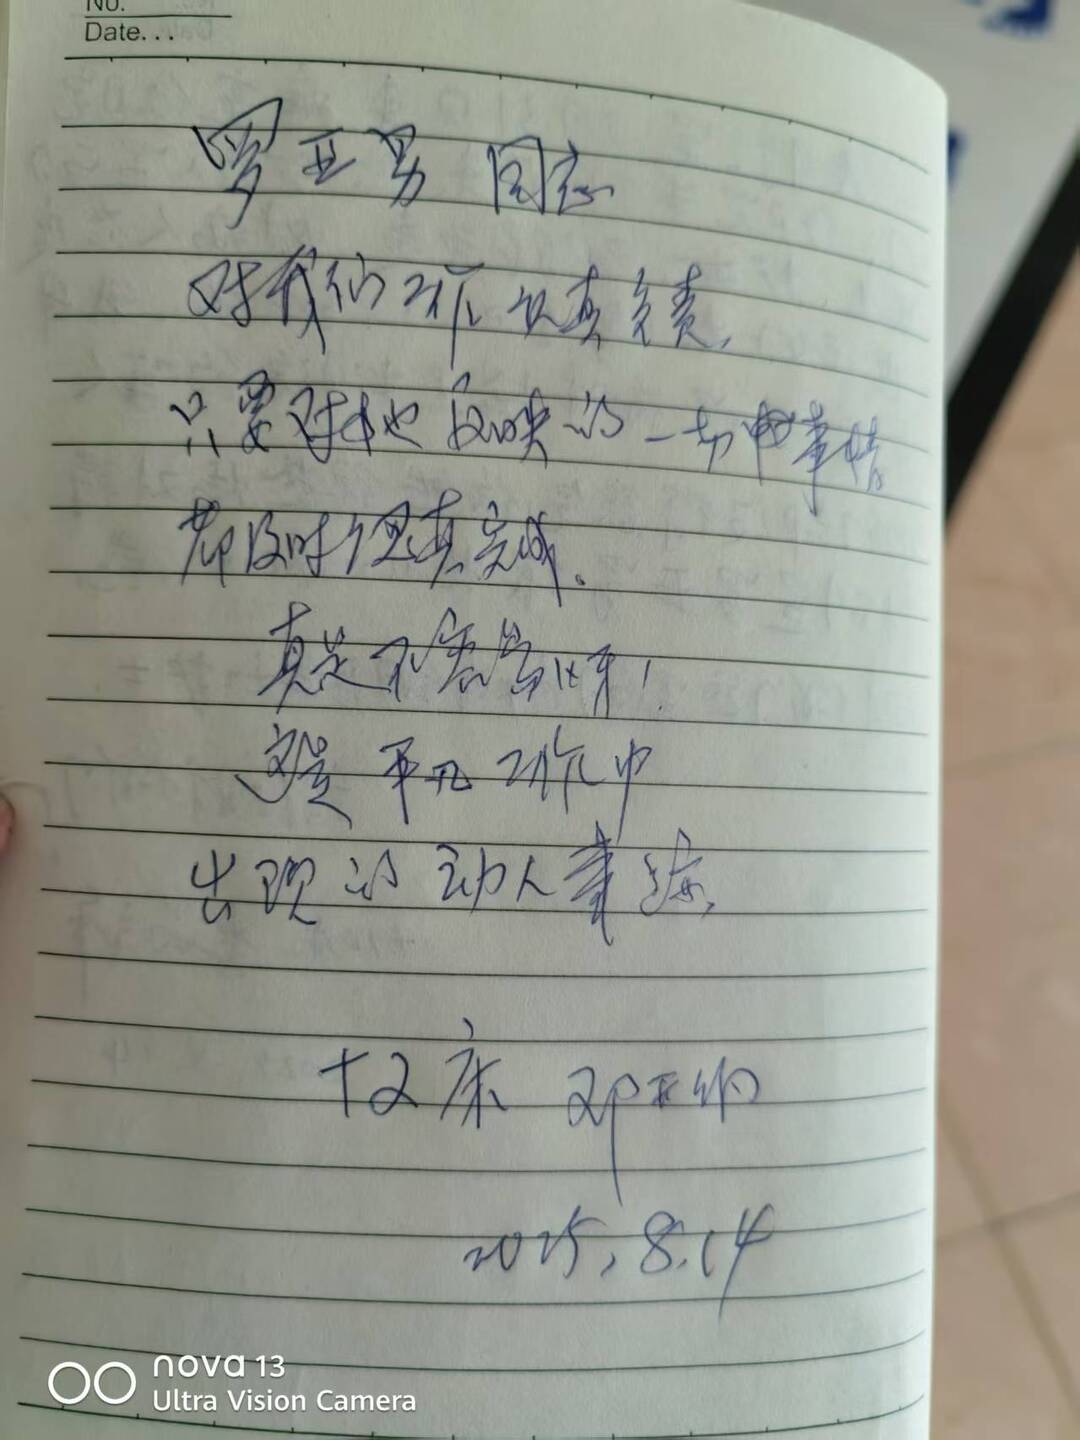 No.
Date...
罗亚男 同志
对我们工作认真负责,
只要对他反映的一切事情
都及时认真完成。
真是不容易呀!
这是平凡工作中
出现的动人事迹,
十2床 邓亚
2025.8.14
nova 13
Ultra Vision Camera